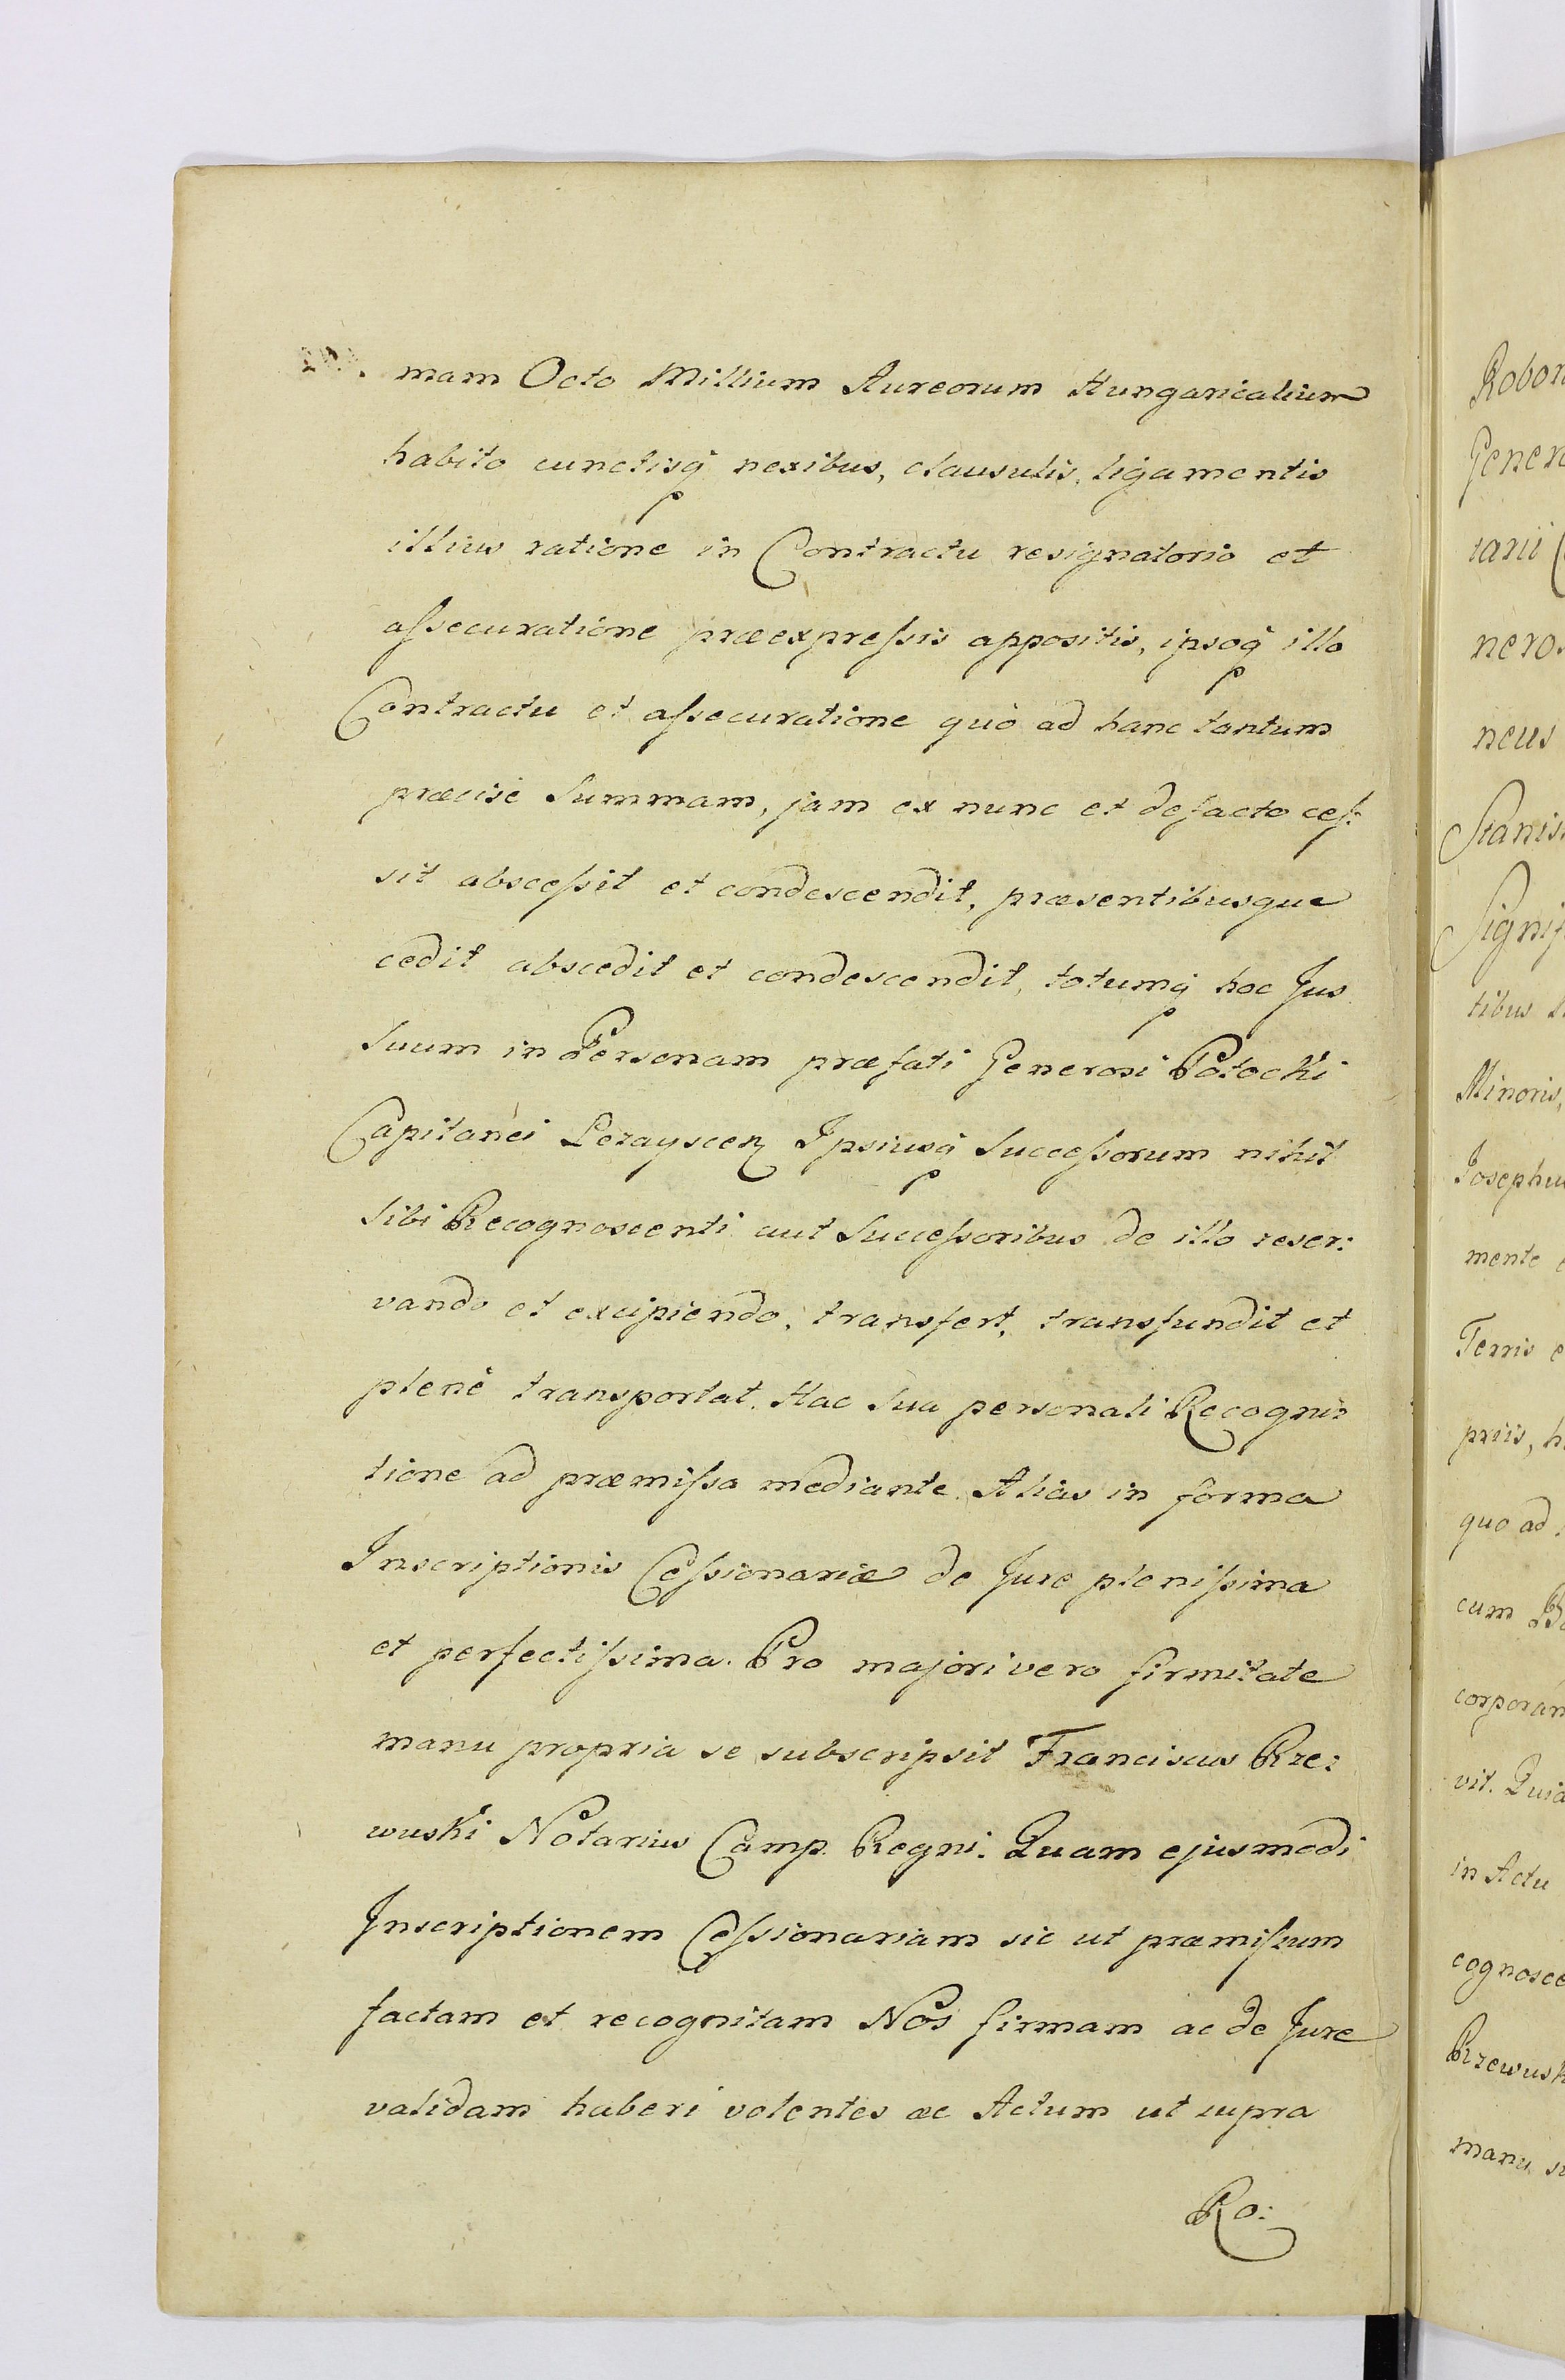 mam Octo Millium Aureorum Hungaricalium
habito cunctisq nexibus, clausulis, ligamentis
illius ratione in Contractu resignatorio et
aſsecuratione præexpreſsis appositis, ipsoq illo
Contractu et aſsecuratione quò ad hanc tantum
præcisè Summam, jam ex nunc et defacto ceſ:
sit absceſsit et condescendit, præsentibusque
cedit abscedit et condescendit, totumq hoc Jus
Suum in Personam præfati Generosi Potocki
Capitanei Lezayscen Ipsiusq Succeſsorum nihil
Sibi Recognoscenti aut Succeſsoribus de illo reser:
vando et excipiendo, transfert, transfundit et
plenè transportat. Hac Sua personali Recogni:
tione ad præmiſsa mediante. Alias in forma
Inscriptionis Ceſsionariæ de Jure pleniſsima
et perfectiſsima. Pro majori vero firmitate
manu propria se subscripsit Franciscus Rze:
wuski Notarius Camp. Regni. Quam ejusmodi
Inscriptionem Ceſsionariam sic ut præmiſsum
factam et recognitam Nos firmam ac de Jure
validam haberi volentes ac Actum ut supra
Ro:
Robor
Genero
rarii
nero
neus
Stanis
Signif
tibus
Minoris,
Josephu
mente
Terris
priis, h
quo ad
cum
corporan
vit. Quia
in Actu
cognosce
Rzewusk
manu